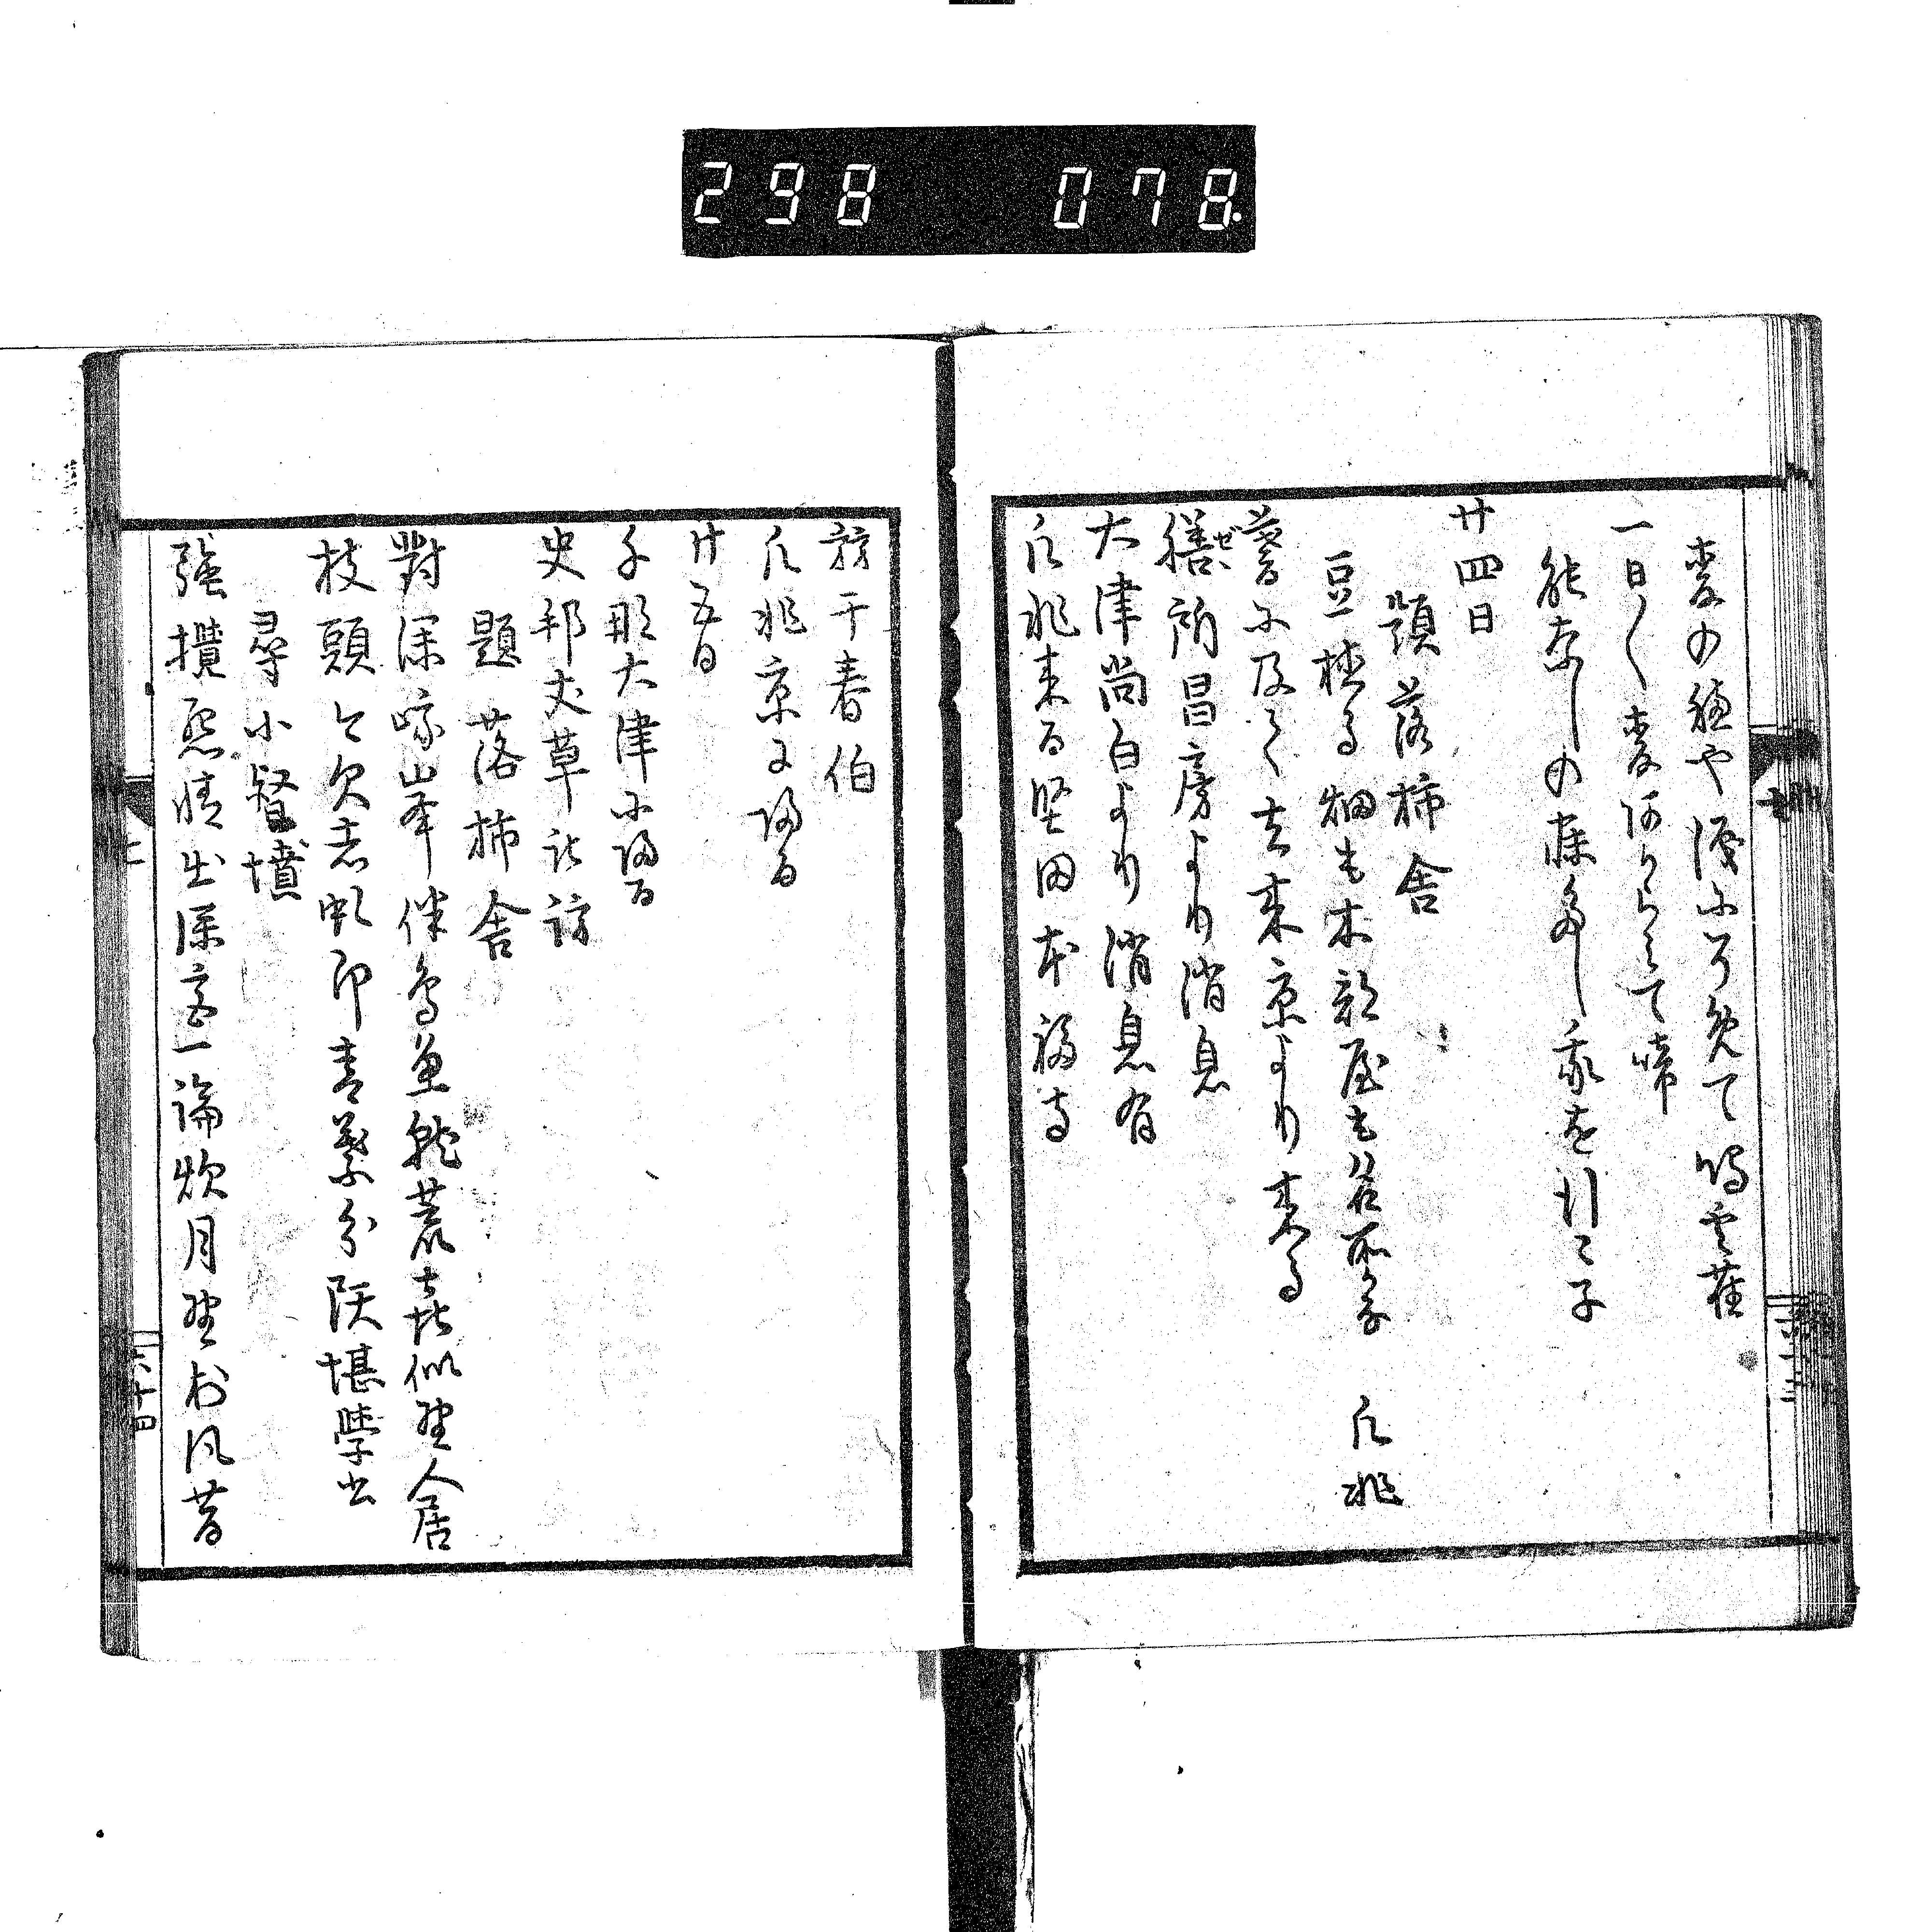 298 078.
麦の穂や涙に染て啼雲雀
一日〱麦あからみて啼
能なしの寐たし我を行〻子
廿四日
題落柿舎
豆植る畑も木部屋も名所かな 凡兆
暮に及て去来京より来る
膳所昌房より消息
ぜゞ
大津尚白より消息有
凡兆来る堅田本福寺
訪千春伯
凡兆京に帰る
廿五日
千那大津に帰る
史邦丈草訪
題落柿舎
對深峨峯伴鳥魚就荒喜似野人居
枝頭今欠赤虬卵青葉分題堪學書
尋小督墳
強攪怨情出深宮一輪秋月野村風昔
六十四